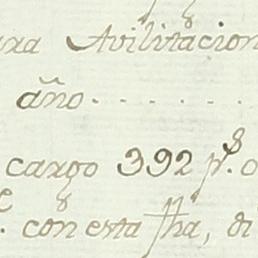 ara Avilitacion
año.......
cargo 392 p.s
con esta fha, di